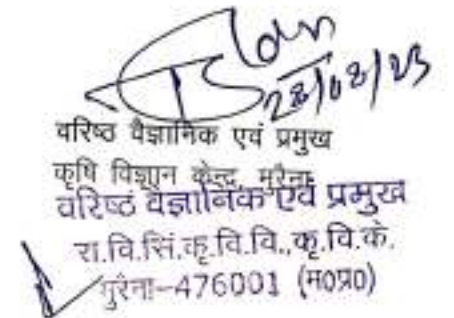 28/02/23
वरिष्ठ वैज्ञानिक एवं प्रमुख
कृषि विज्ञान केन्द्र, मुरैना
वरिष्ठ वैज्ञानिक एवं प्रमुख
रा.वि.सिं.कृ.वि.वि.,कृ.वि.के.
मुरैना-476001 (म0प्र0)